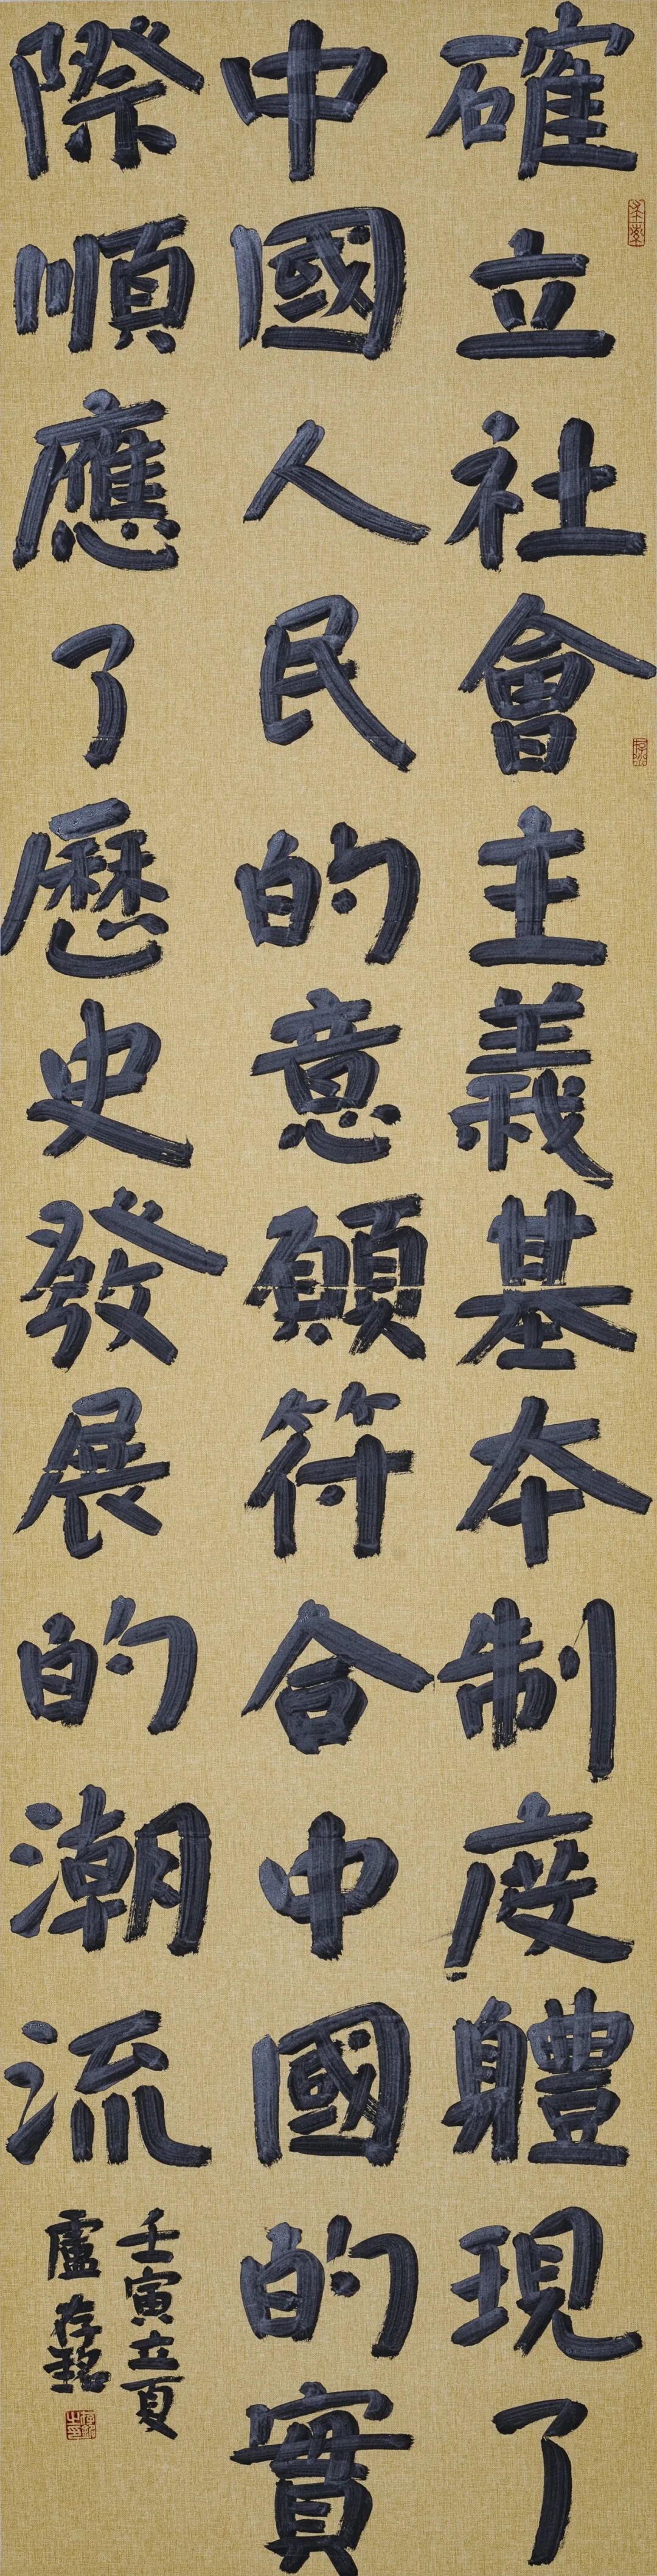 確立社會主義基本制度體現了
中國人民的意願符合中國的實
際順應了歷史發展的潮流
壬寅立夏
盧存